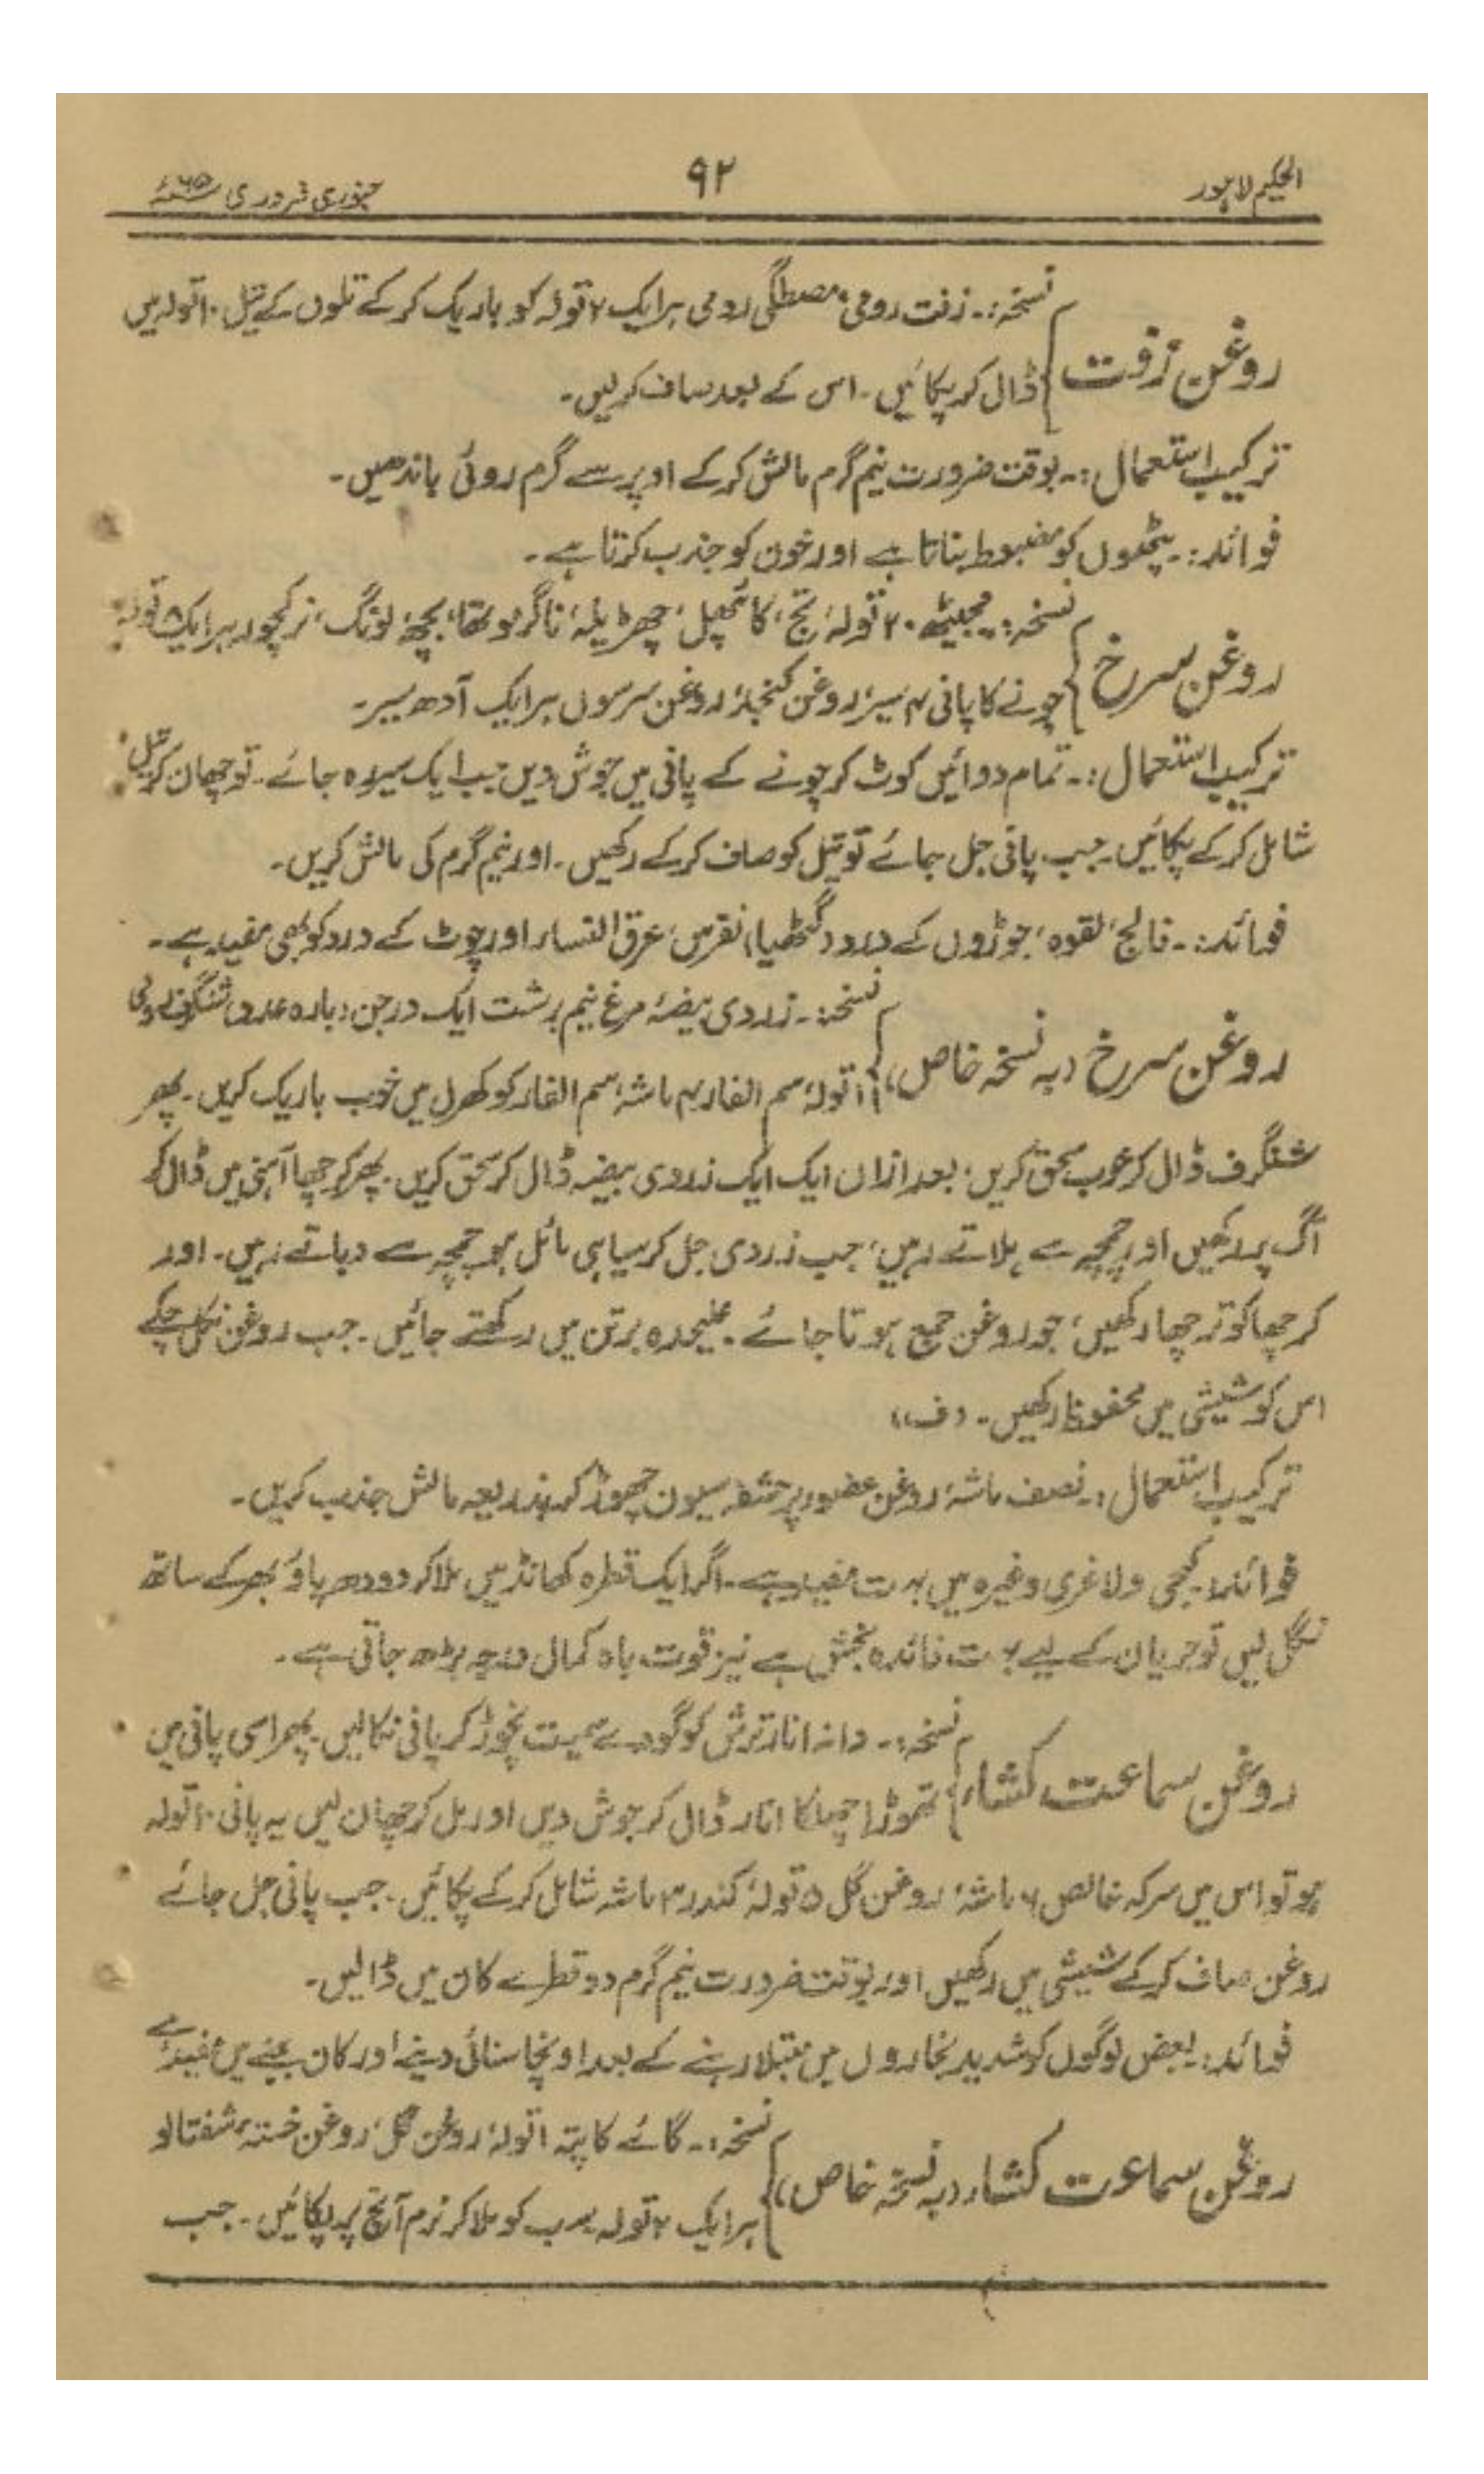 الحکیم لاہور ۹۲ جنوری فروری ۶۵ء
روغن زفت
نسخہ:۔ زفت رومی، مصطگی رومی ہر ایک ۲ تولہ کو باریک کرکے تلوں کے تیل ۱۰ تولہ میں
ڈال کر پکائیں۔ اس کے بعد صاف کرلیں۔
ترکیب استعمال:۔ بوقت ضرورت نیم گرم مالش کرکے اوپر سے گرم روئی باندھیں۔
فوائد:۔ پٹھوں کو مضبوط بناتا ہے اور خون کو جذب کرتا ہے۔
روغن سرخ
نسخہ:۔ مجیٹھ ۲۰ تولہ، تج، کائپھل، چھڑیلہ، ناگرموتھا، بچھ، لونگ، نرکچور ہر ایک ۵ تولہ
چونے کا پانی ۴ سیر، روغن کنجد، روغن سرسوں ہر ایک آدھ سیر۔
ترکیب استعمال:۔ تمام دوائیں کوٹ کر چونے کے پانی میں جوش دیں جب ایک سیر رہ جائے۔ تو چھان کر تیل
شامل کرکے پکائیں۔ جب پانی جل جائے تو تیل کو صاف کرکے رکھیں۔ اور نیم گرم کی مالش کریں۔
فوائد:۔ فالج، لقوہ، جوڑوں کے درد (گٹھیا)، نقرس، عرق النساء اور چوٹ کے درد کو بھی مفید ہے۔
روغن سرخ (بہ نسخہ خاص)
نسخہ:۔ زردی بیضہ مرغ نیم برشت ایک درجن (بارہ عدد) شنگرف رومی
۱ تولہ، سم الفار ۴ ماشہ، سم الفار کو کھرل میں خوب باریک کریں۔ پھر
شنگرف ڈال کر خوب سحق کریں، بعد ازاں ایک ایک زردی بیضہ ڈال کر سحق کریں۔ پھر کرچھا آہنی میں ڈال کر
آگ پر رکھیں اور چمچہ سے ہلاتے رہیں، جب زردی جل کر سیاہی مائل ہو چمچہ سے دباتے رہیں۔ اور
کرچھا کو ترچھا رکھیں، جو روغن جمع ہوتا جائے۔ علیحدہ برتن میں رکھتے جائیں۔ جب روغن نکل چکے
اس کو شیشی میں محفوظ رکھیں۔ (ف)
ترکیب استعمال:۔ نصف ماشہ روغن عضو پر حشفہ سیون چھوڑ کر بذریعہ مالش جذب کریں۔
فوائد:۔ کجی ولاغری وغیرہ میں بہت مفید ہے۔ اگر ایک قطرہ کھانڈ میں ملا کر دودھ پاؤ بھر کے ساتھ
نگل لیں تو جریان کے لیے بہت فائدہ بخش ہے نیز قوت باہ کمال درجہ بڑھ جاتی ہے۔
روغن سماعت کشاء
نسخہ:۔ دانہ انار ترش کو گودے سمیت نچوڑ کر پانی نکالیں۔ پھر اسی پانی میں
تھوڑا چھلکا انار ڈال کر جوش دیں اور مل کر چھان لیں یہ پانی ۱۰ تولہ
ہو تو اس میں سرکہ خالص ۶ ماشہ، روغن گل ۵ تولہ، کندر ۳ ماشہ شامل کرکے پکائیں۔ جب پانی جل جائے
روغن صاف کرکے شیشی میں رکھیں اور بوقت ضرورت نیم گرم دو قطرے کان میں ڈالیں۔
فوائد:۔ بعض لوگوں کو شدید بخاروں میں مبتلا رہنے کے بعد اونچا سنائی دینے اور کان بہنے میں مفید ہے
روغن سماعت کشاء (بہ نسخہ خاص)
نسخہ:۔ گائے کا پتہ ۱ تولہ، روغن گل، روغن خستہ شفتالو
ہر ایک ۲ تولہ سب کو ملا کر نرم آنچ پر پکائیں۔ جب